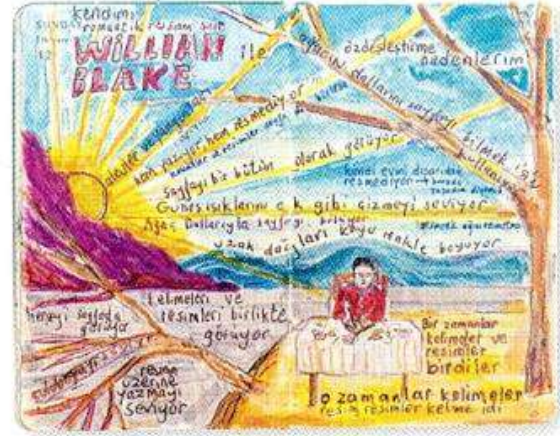 kendimi
SUNDAY
romantik ressam şair
12
WILLIAM ile
BLAKE
özdeşleştirme
nedenlerim
ağacın dallarını sayfayı bölmek için
kullanıyor
hem yazıyor, hem resmediyor
sayfayı bir bütün olarak görüyor
kendi evini dışarıdan
resmediyor
Güneş ışıklarını ok gibi çizmeyi seviyor
Ağaç Dallarıyla sayfayı bölüyor
uzak dağları koyu renkle boyuyor
kelimeleri ve
resimleri birlikte
görüyor
herşeyi sayfada
görüyor
resmin
üzerine
yazmayı
seviyor
Bir zamanlar
kelimeler ve
resimler
birdiler
o zamanlar kelimeler
resim resimler kelime idi